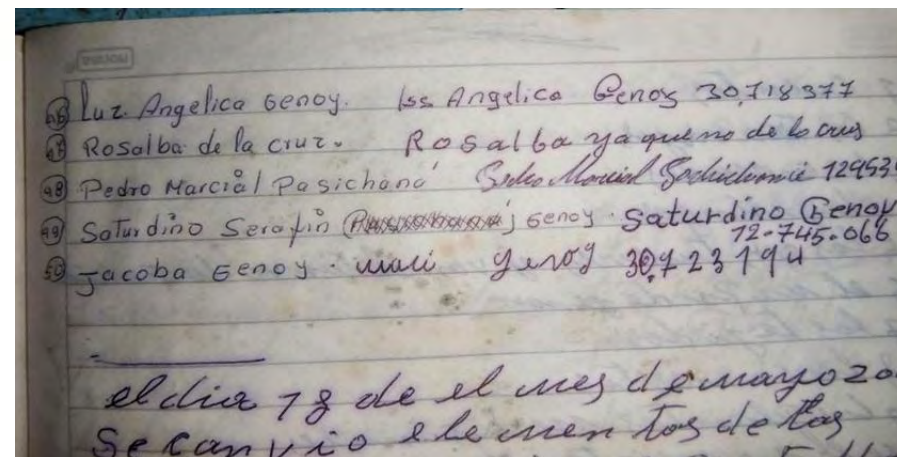 46 Luz Angelica Genoy. Iss Angelica Genoy 30,718377
47 Rosalba de la cruz. Rosalba yaqueno de la cruz
48 Pedro Marcial Pasichaná Pedro Marcial 129535
49 Saturdino Serafin Genoy. Saturdino Genoy
12-745-066
50 Jacoba Genoy. Genoy 30,723194
el dia 18 de el mes de mayo 20
Se canvio elementos de las